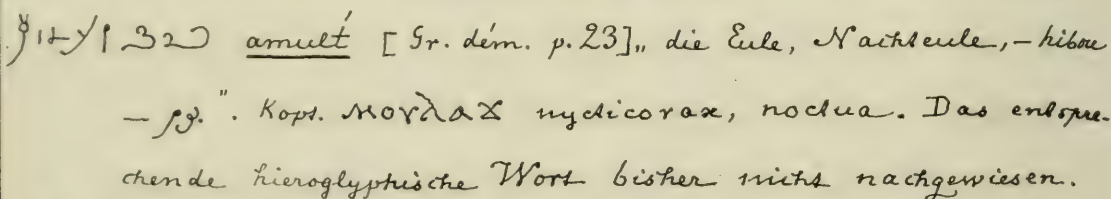 amulť [Gr. dém. p. 23] „die Eule, Nachteule, – hibou
– ". Kopt. ⲙⲟⲩⲗⲁϫ nycticorax, noctua. Das entspre-
chende hieroglyphische Wort bisher nicht nachgewiesen.